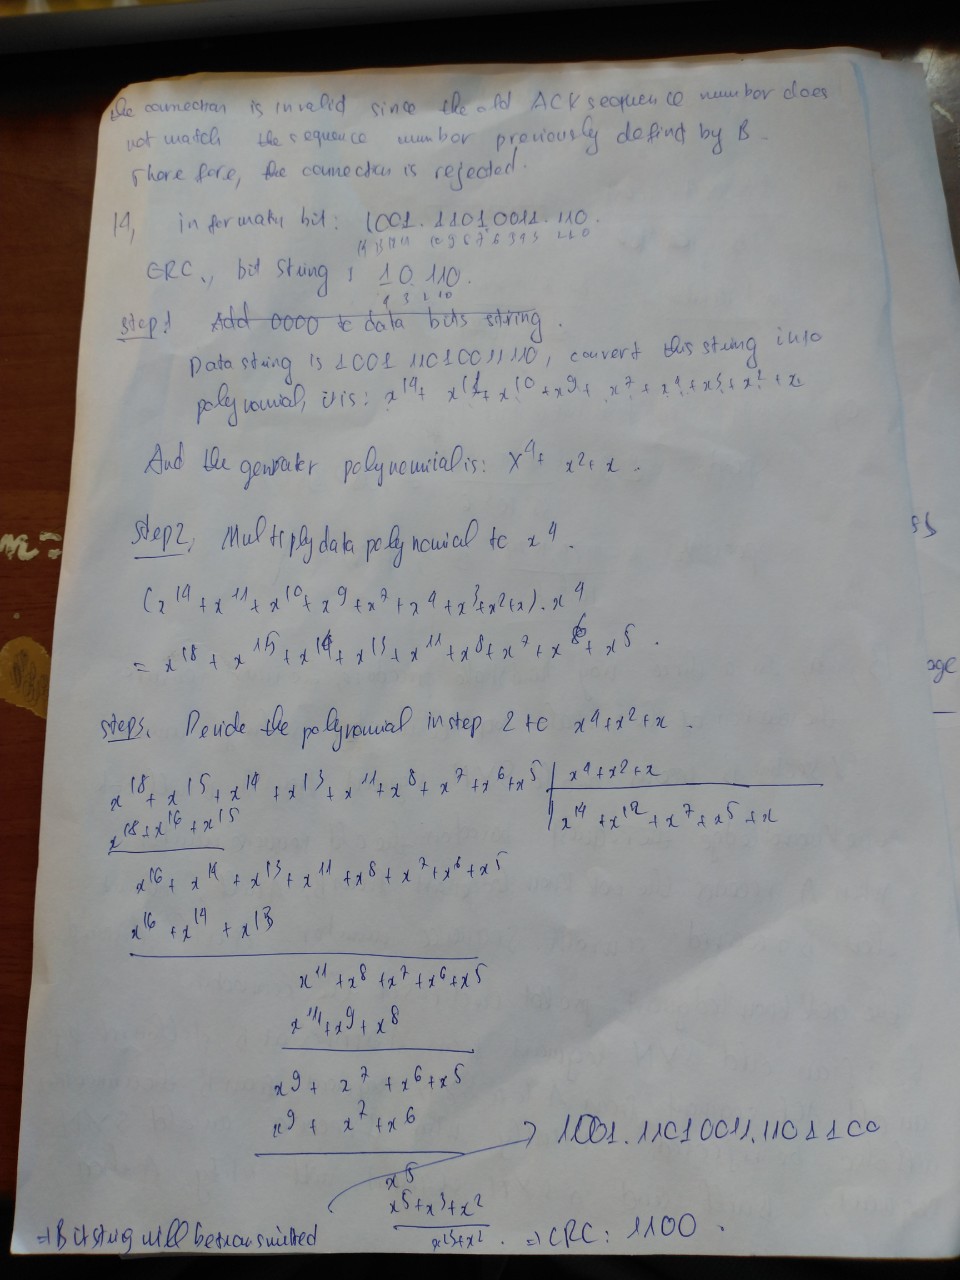 the connection is invalid since the old ACK sequence number does
not match the sequence number previously defind by B.
Therefore, the connection is rejected.
14, information bit: 1001.11010011.110.
CRC, bit string: 10110.
4 3 2 1 0
step1 Add 0000 to data bits string.
Data string is 1001 11010011110, convert this string into
polynomial, it is: x^14 + x^11 + x^10 + x^9 + x^7 + x^4 + x^3 + x^2 + x
And the generater polynomial is: x^4 + x^2 + x.
step2, Multiply data polynomial to x^4.
(x^14 + x^11 + x^10 + x^9 + x^7 + x^4 + x^3 + x^2 + x).x^4
= x^18 + x^15 + x^14 + x^13 + x^11 + x^8 + x^7 + x^6 + x^5.
step3. Devide the polynomial in step 2 to x^4 + x^2 + x.
x^18 + x^15 + x^14 + x^13 + x^11 + x^8 + x^7 + x^6 + x^5 x^4 + x^2 + x
x^18 + x^16 + x^15 x^14 + x^12 + x^7 + x^5 + x
x^16 + x^14 + x^13 + x^11 + x^8 + x^7 + x^6 + x^5
x^16 + x^14 + x^13
x^11 + x^8 + x^7 + x^6 + x^5
x^11 + x^9 + x^8
x^9 + x^7 + x^6 + x^5
x^9 + x^7 + x^6
→ 1001.11010011.1101100
x^5
x^5 + x^3 + x^2
⇒ Bit string will be transmitted x^3 + x^2. ⇒ CRC: 1100.